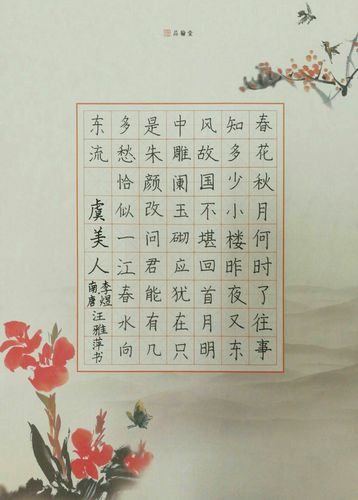 品翰堂
春花秋月何时了往事
知多少小楼昨夜又东
风故国不堪回首月明
中雕阑玉砌应犹在只
是朱颜改问君能有几
多愁恰似一江春水向
东流
虞美人
南唐
李煜
汪雅萍书